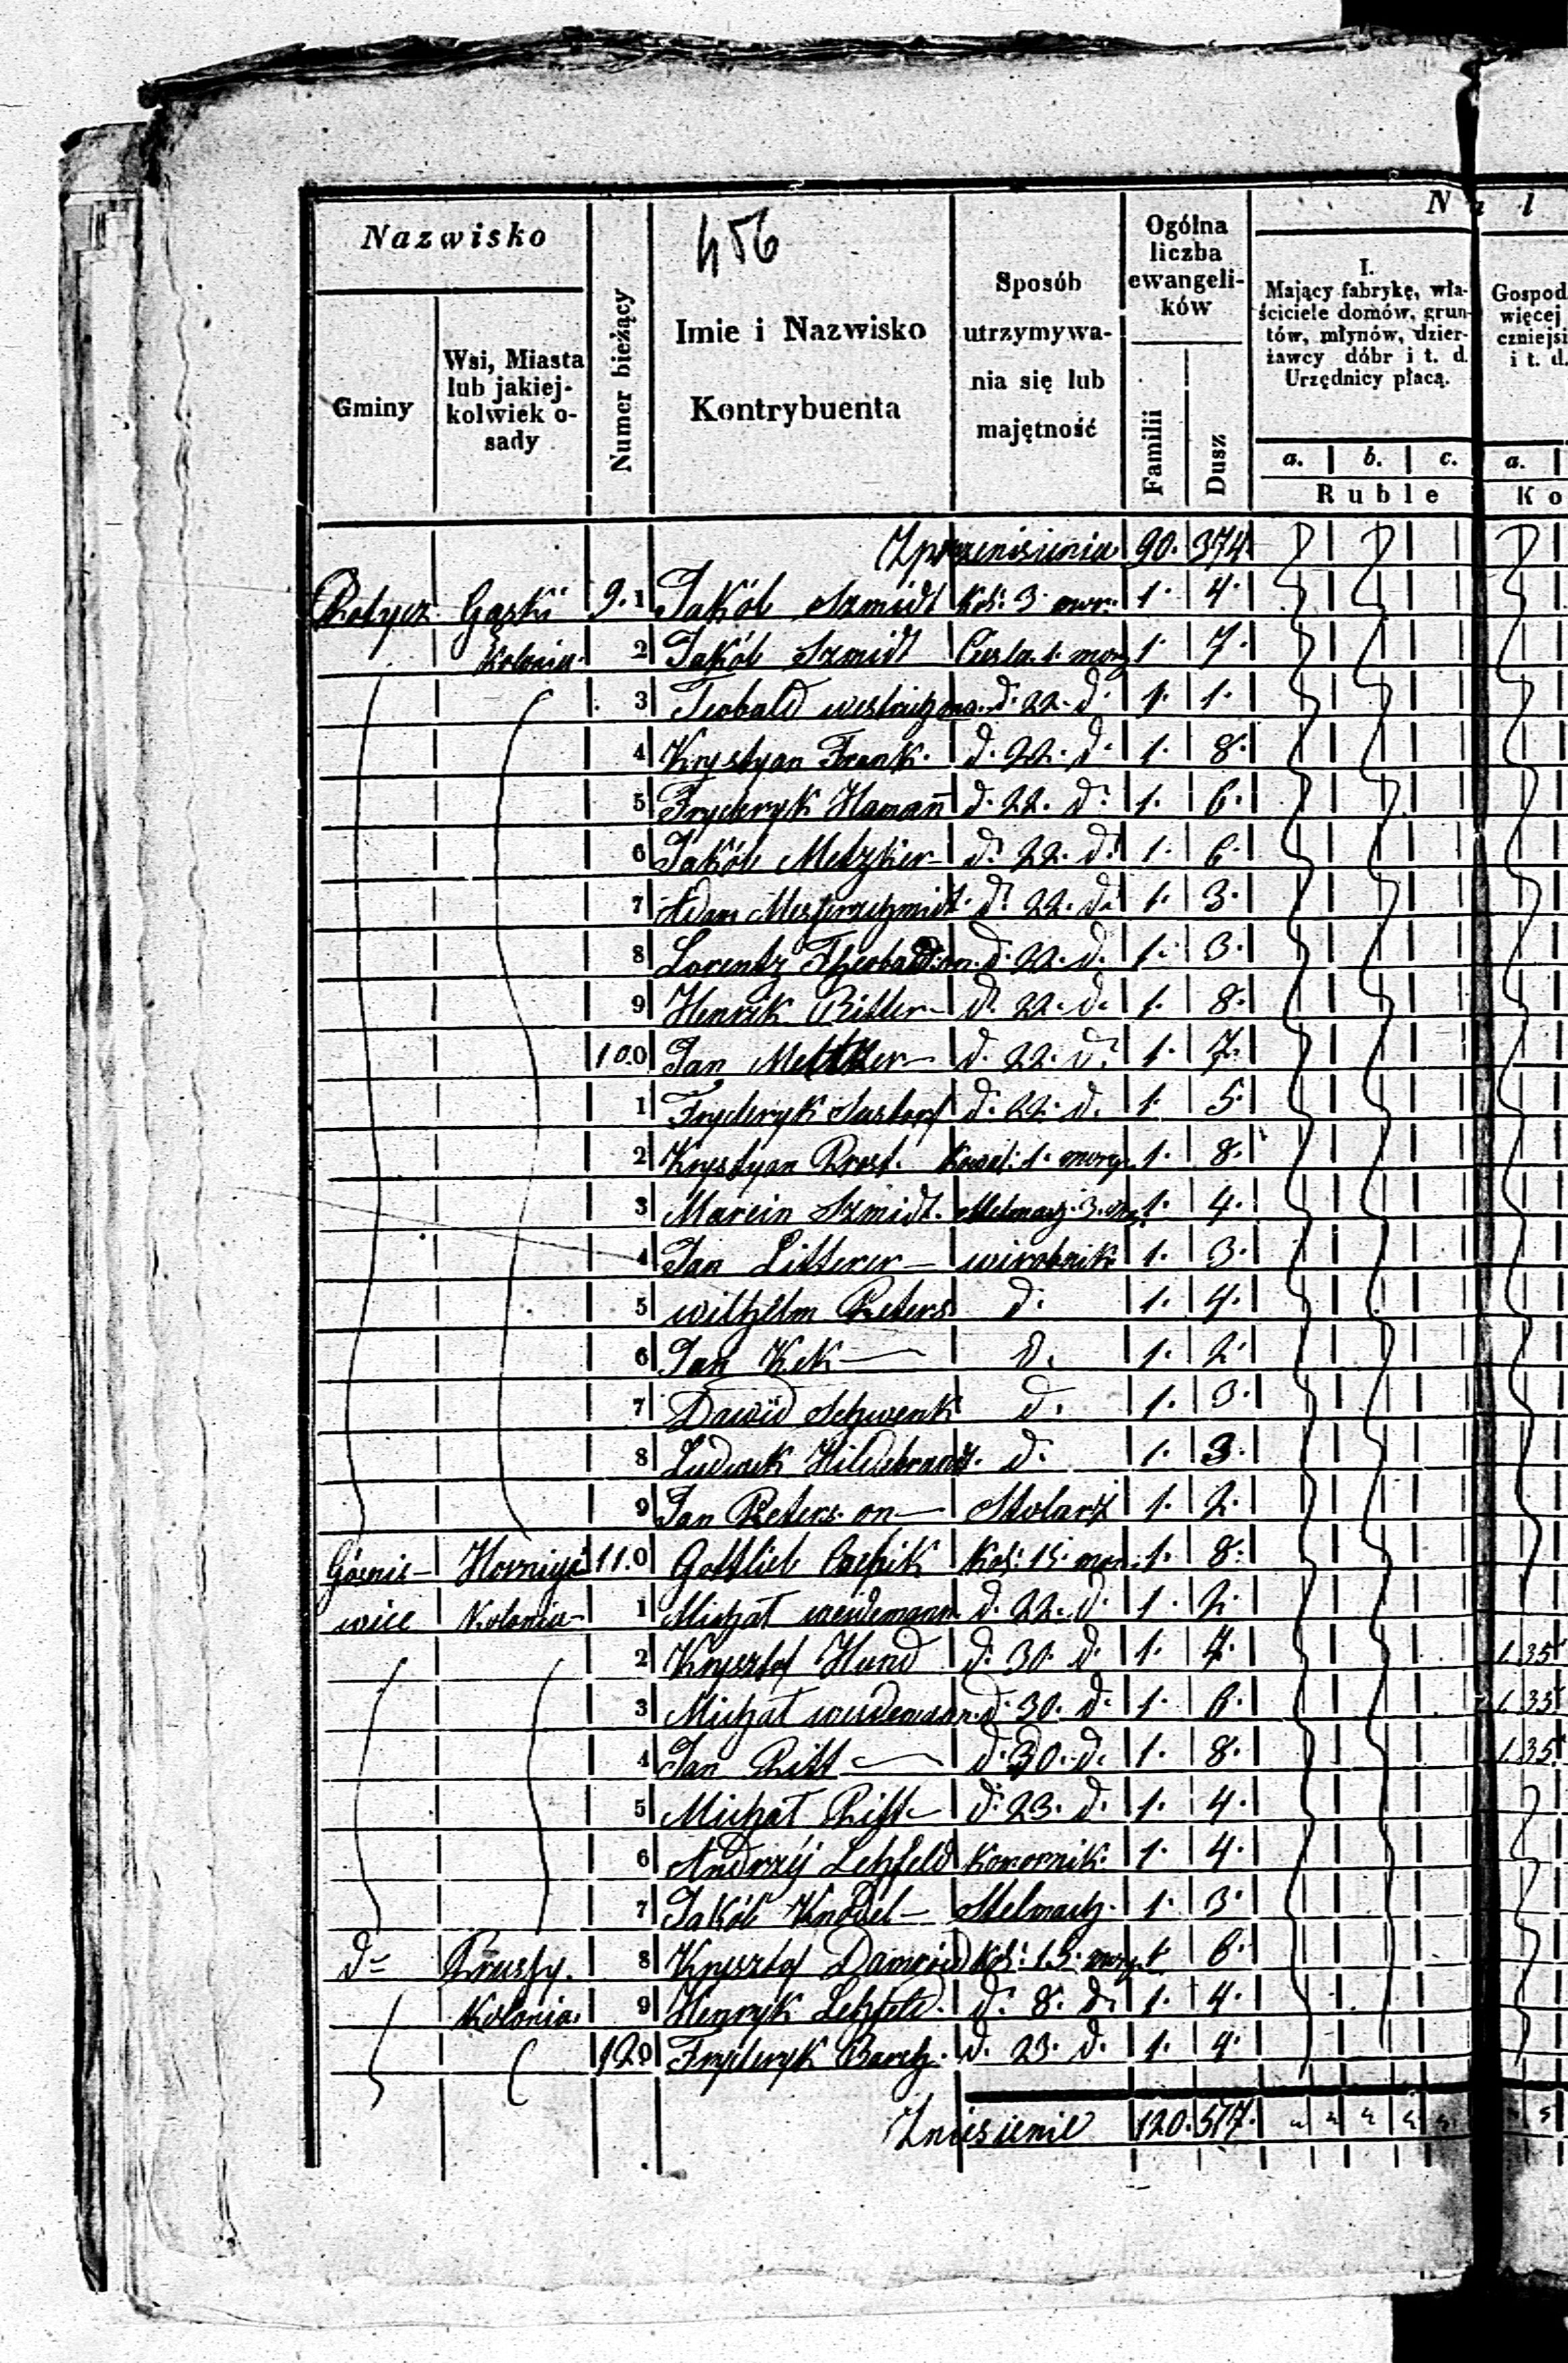 Nazwisko
Gminy
Wsi, Miasta lub jakiej-kolwiek o-sady
Numer bieżący
456
Imie i Nazwisko
Kontrybuenta
Sposób utrzymywa-nia się lub majętność
Ogólna liczba ewangeli-ków
Familii
Dusz
N a l
I.
Mający fabrykę, wła-
ściciele domów, grun-
tów, młynów, dzier-
żawcy dóbr i t. d.
Urzędnicy płacą.
a. b. c.
Ruble
Gospod
więcej
czniejsi
i t. d.
a.
Ko
Zprzeniesienia 90. 374.
Gąski 9.1 Jakób Szmidt Kol: 3 1. 4.
Kolonia 2 Jakób Szmidt Ciesla. 1. morg 1. 7.
3 Teobald d. 22. d. 1. 1.
4 Krystyan Frank. d. 22. d. 1. 8.
5 Fryderyk Hamañ d. 22. d. 1. 6.
6 Jakób Metzker d. 22. d. 1. 6.
7 Adam d. 22. d. 1. 3.
8 Lorentz d. 22. d. 1. 3.
9 Henrik Ritter d. 22. d. 1. 8.
100 Jan Metzker d. 22. d. 1. 7.
1 Fryderyk d. 22. d. 1. 5.
2 Krystyan 1. morg. 1. 8.
3 Marcin Szmidt. Stelmach. 3. 1. 4.
4 Jan Litterer wirobnik 1. 3.
5 Wilhelm Peters d. 1. 4.
6 Jan Kek d. 1. 2.
7 Dawid Schwenk d. 1. 3.
8 Ludwik Hildebrandt. d. 1. 3.
9 Jan Peters on Stolarz 1. 2.
110 Gottlieb Kol: 15. 1. 8.
wice Kolonia 1 Michał Weidemann d. 22. d. 1. 2.
2 Krysztof Hund d. 30. d. 1. 4. 1 35
3 Michał Weidemann d. 30. d. 1. 6. 1 35
4 Jan d. 30. d. 1. 8. 1 35
5 Michał d. 23. d. 1. 4.
6 Andrzij Lehfeld Komornik. 1. 4.
7 Jakób Knodel Stelmach. 1. 3.
d= Prussy. 8 Krysztof Kol: 15. morg. 1. 6.
Kolonia. 9 Henryk Lehfeld. d. 8. d. 1. 4.
120 Fryderyk d. 23. d. 1. 4.
Zniesienie 120. 517.